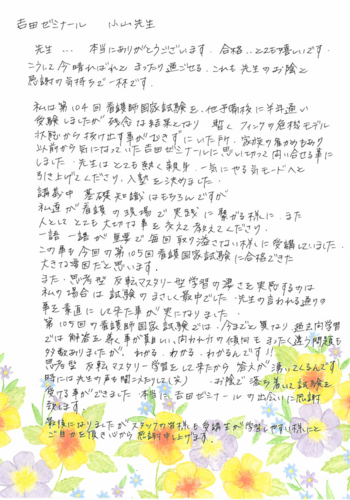 吉田ゼミナール 小山先生
先生… 本当にありがとうございます。合格…とても嬉しいです。
こうして今晴ればれとまったり過ごせる。これも先生のお陰と
感謝の気持ちで一杯です。
私は第104回看護師国家試験を、他予備校に半年通い
受験しましたが残念な結果となり 暫くフィンクの危機モデル
状況から抜け出す事ができずにいた所、家族の薦めもあり
以前から気になっていた吉田ゼミナールに思い切って問い合せる事に
しました。先生はとても熱く親身、一気にやる気モードへと
引き上げてくださり、入塾を決めました。
講義中 基礎知識はもちろんですが
私達が看護の現場で実践に繋がる様に、また
人としてとても大切な事を交え教えてくださり、
一語一語が重要で毎回取り溢さない様に受講していました。
この事も今回の第105回看護師国家試験に合格できた
大きな要因だと思います。
また、思考型 反転マスタリー型学習の凄さを実感するのは
私の場合は試験のまさしく最中でした。先生の言われる通りの
事を素直にして来た事が実になりました。
第105回の看護師国家試験では、今までと異なり、過去問学習
では解答を導く事が難しい、問われ方の傾向もまったく違う問題も
多数ありましたが、わかる、わかる、わかるんです!!
思考型 反転マスタリー学習をして来たから 答えが湧いてくるんです
時には先生の声も聞こえたりして(笑) お陰で落ち着いて試験を
受ける事ができました。本当に、吉田ゼミナールの出会いに感謝
致します。
最後になりましたがスタッフの皆様も受講生が学習しやすい様にと
ご自力を頂き心から感謝申し上げます。